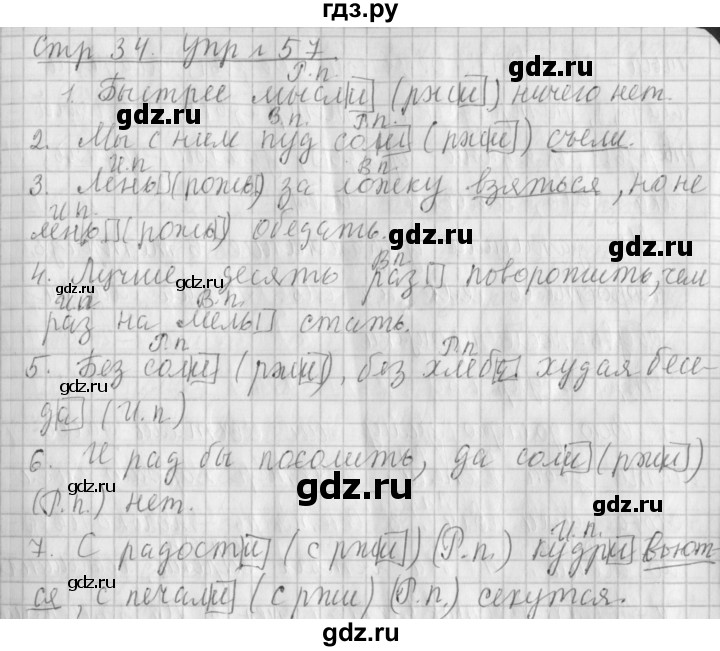 гдз.ру
Стр 34. Упр № 57
Р.п
1. Быстрее мысли (ржи) ничего нет.
gdz.ru
В.п. Р.п.
2. Мы с ним пуд соли (ржи) съели.
И.п gdz.ru В.п.
3. Лень (рожь) за ложку взяться, но не
И.п. gdz.ru
лень (рожь) обедать.
gdz.ru
В.п
4. Лучше десять раз поворотить, чем
И.п В.п. gdz.ru
раз на мель стать.
gdz.ru Р.п Р.п
5. Без соли (ржи), без хлеба худая бесе-
gdz.ru
да (И.п)
gdz.ru
6. И рад бы посолить, да соли (ржи)
gdz.ru
(Р.п.) нет.
gdz.ru
И.п.
7. С радости (с ржи) (Р.п.) кудри вьют-
gdz.ru
ся, с печали (с ржи) (Р.п.) секутся.
gdz.ru
гдз.ру